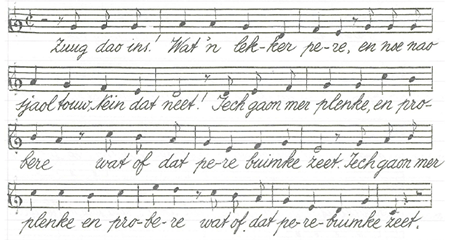 Zuug dao ins! Wat 'n lek-ker pe-re, en noe nao
sjaol touw. Nein dat neet! Iech gaon mer plenke, en pro-
bere wat of dat pe-re buimke zeet. Iech gaon mer
plenke en pro-be-re wat of dat pe-re-buimke zeet.